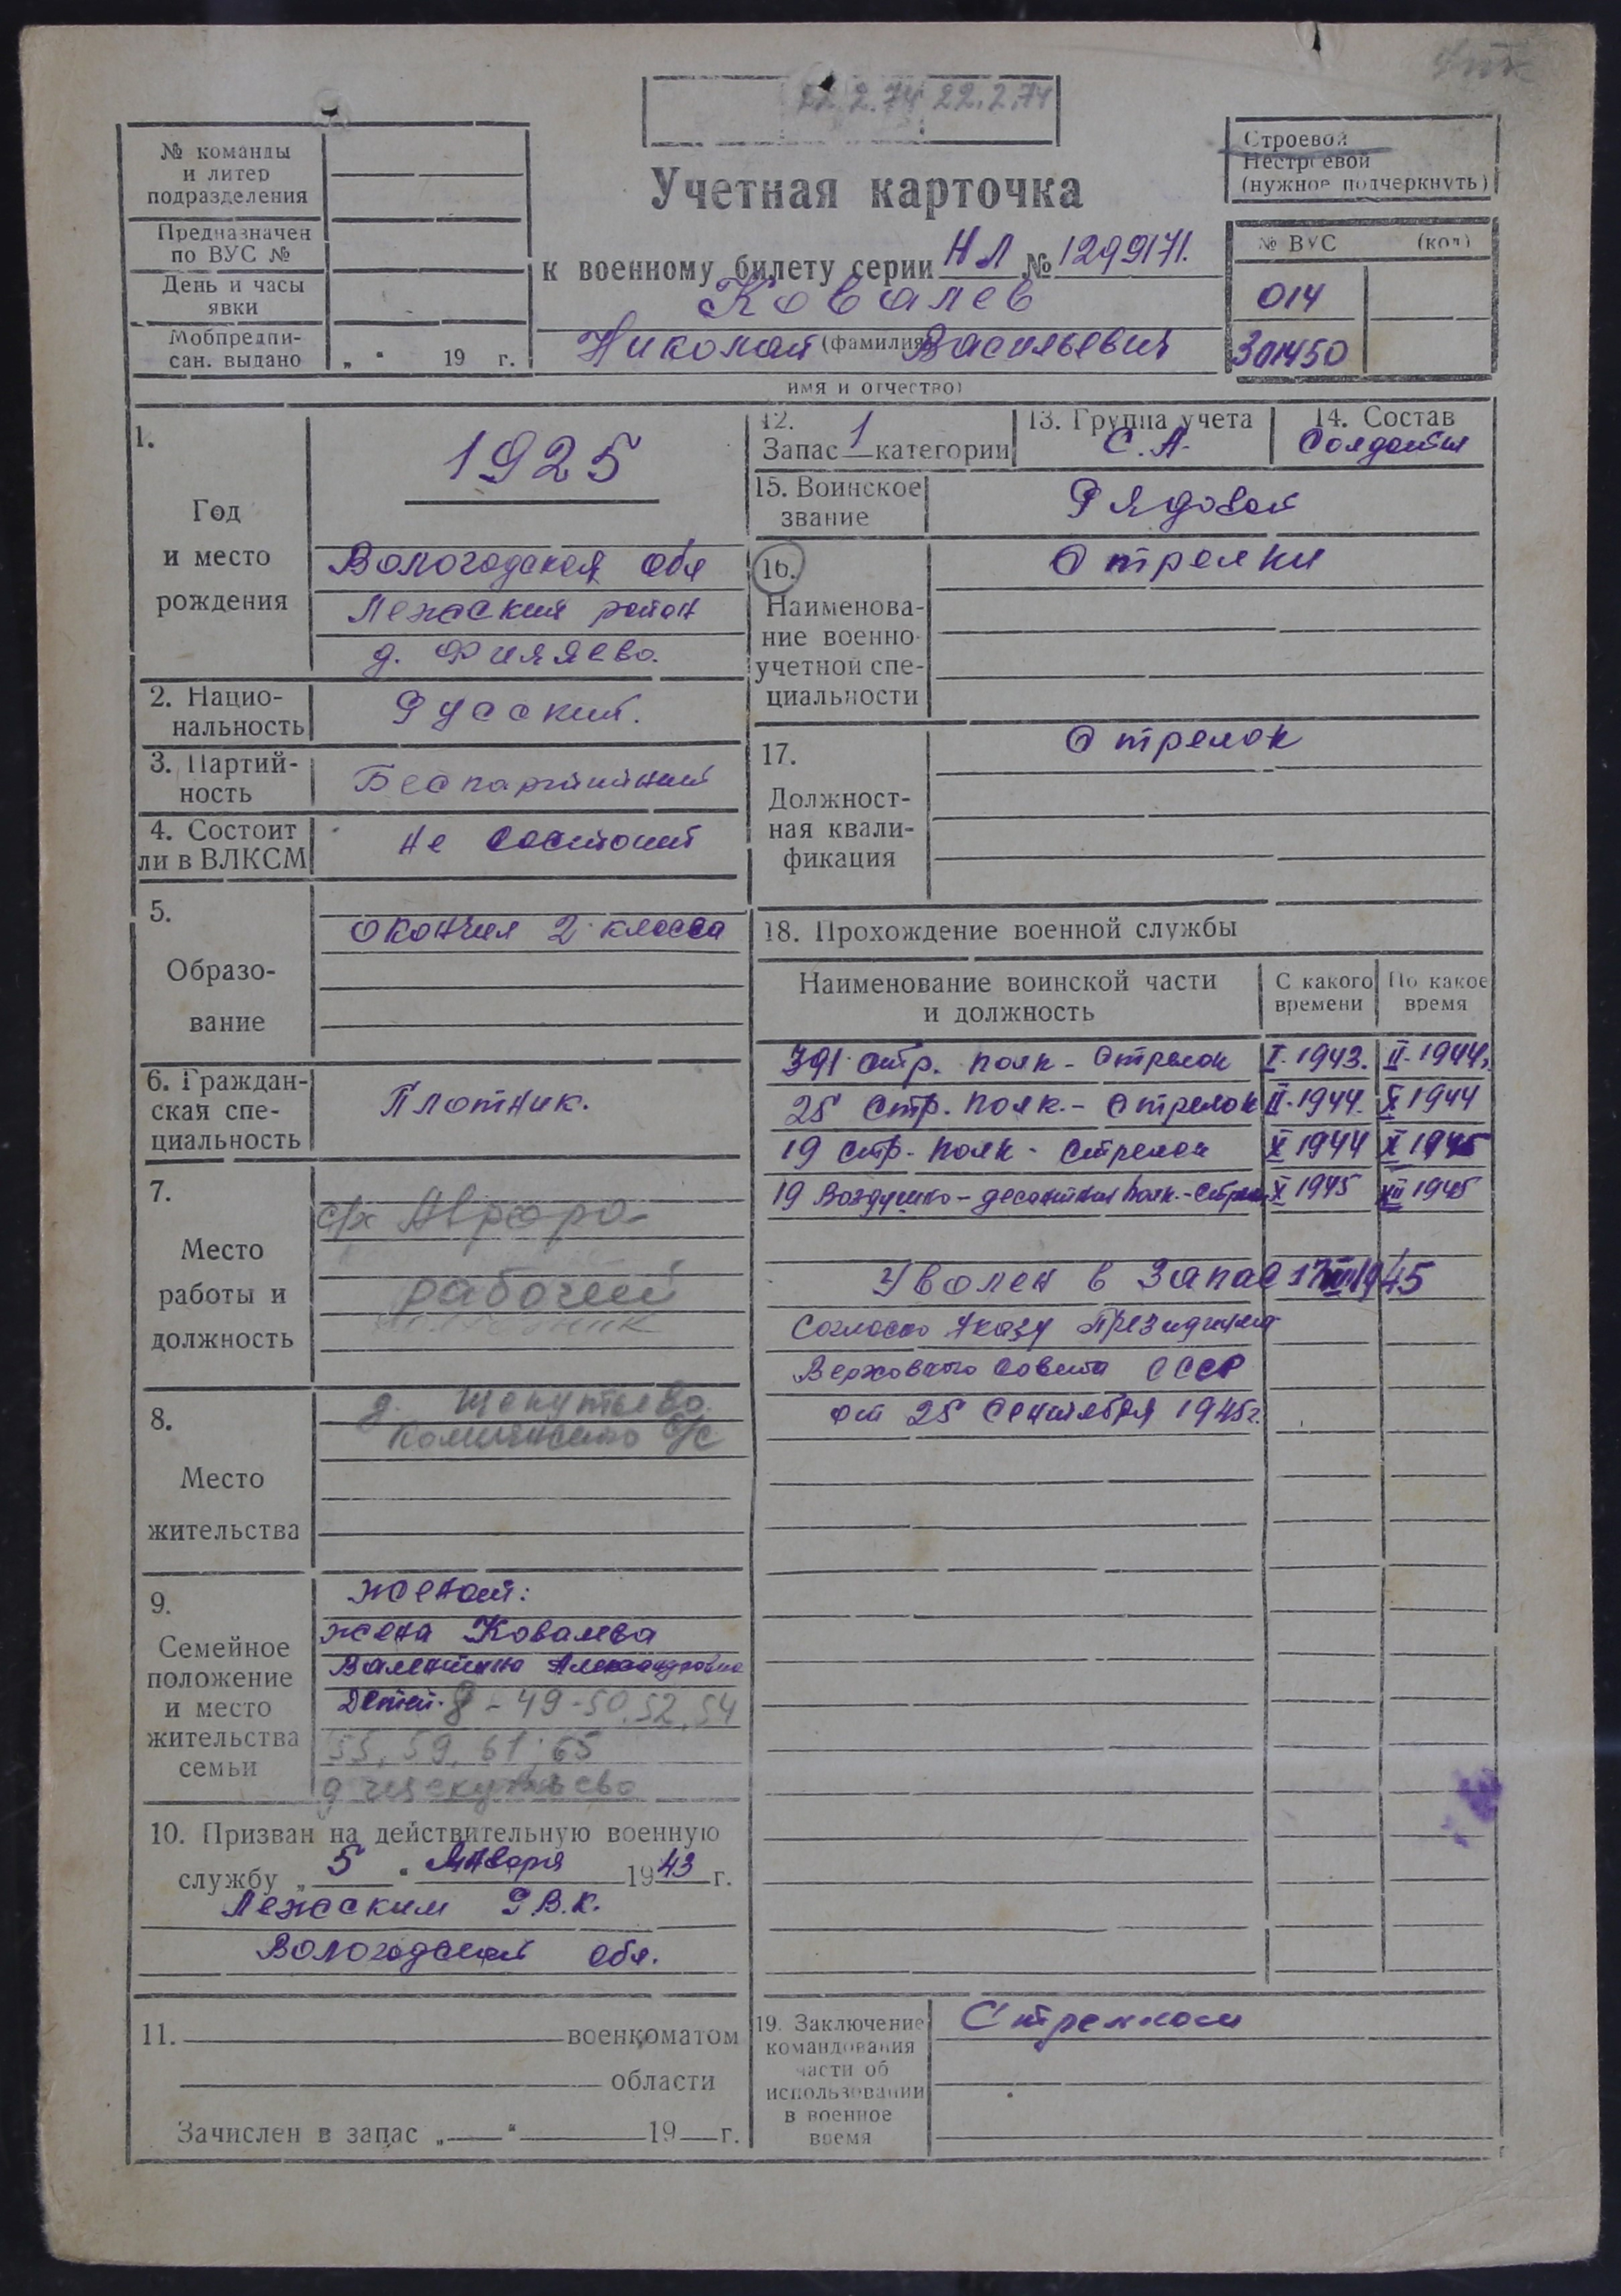 22.2.74 22.2.74
№ команды
и литер
подразделения
Предназначен
по ВУС №
День и часы
явки
Мобпредпи-
сан. выдано „ “ 19 г.
Учетная карточка
к военному билету серии НЛ № 1299171.
Ковалев
(фамилия)
Николай Васильевич
имя и отчество)
Строевой
Нестроевой
(нужное подчеркнуть)
№ ВУС (код)
014
301450
1.
Год
и место
рождения
1925
Вологодская обл
Лежский район
д. Филяево.
2. Нацио-
нальность
Русский.
3. Партий-
ность
Беспартийный
4. Состоит
ли в ВЛКСМ
Не состоит
5.
Образо-
вание
окончил 2 класса
6. Граждан-
ская спе-
циальность
Плотник.
7.
Место
работы и
должность
с/х Аврора
рабочий
8.
Место
жительства
д. Щекутьево
с/с
9.
Семейное
положение
и место
жительства
семьи
женат:
жена Ковалева
Валентина Александровна
Детей. 8 - 49 - 50. 52, 54
55, 59, 61, 65
д Щекутьево
10. Призван на действительную военную
службу „ 5 “ Января 1943 г.
Лежским Р.В.К.
Вологодской обл.
11. военкоматом
области
Зачислен в запас „ “ 19 г.
12.
Запас 1 категории
13. Группа учета
С.А.
14. Состав
Солдаты
15. Воинское
звание
Рядовой
16.
Наименова-
ние военно-
учетной спе-
циальности
Стрелки
17.
Должност-
ная квали-
фикация
Стрелок
18. Прохождение военной службы
Наименование воинской части
и должность
С какого
времени
По какое
время
391 стр. полк - Стрелок I. 1943. II. 1944.
25 стр. полк. - Стрелок II. 1944. X 1944
19 стр. полк - Стрелок X 1944 X 1945
19 Воздушно-десантный полк. - Стрелок X 1945 XII 1945
Уволен в запас 17 XII 1945
Согласно Указу Президиума
Верховного Совета СССР
от 25 Сентября 1945г.
19. Заключение
командования
части об
использовании
в военное
время
Стрелком